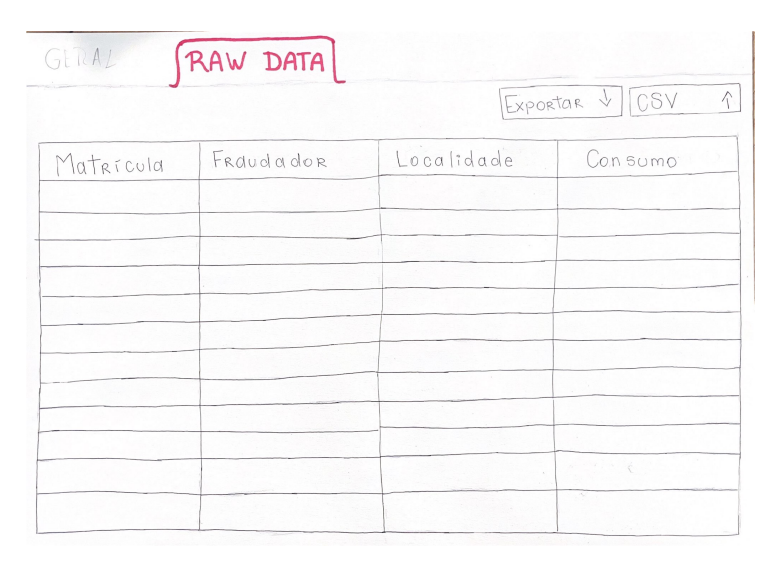 GERAL RAW DATA
Exportar ↓ CSV ↑
Matrícula Fraudador Localidade Consumo